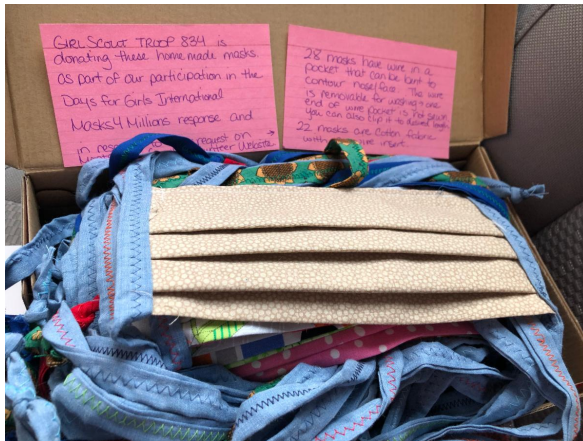 GIRL SCOUT TROOP 834 is
donating these homemade masks
as part of our participation in the
Days for Girls International
Masks4Millions response and
in request on →
Website
28 masks have wire in a
pocket that can be bent to
contour nose/face. The wire
is removable for washing + one
end of wire pocket is not sewn
you can also clip it to
22 masks are cotton fabric
wire insert.